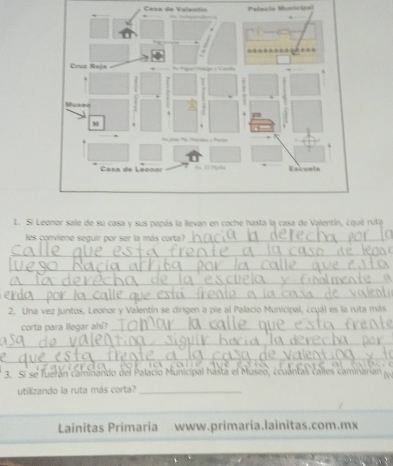 Casa de Valentín
Palacio Municipal
Cruz Roja
Museo
Casa de Leonor
Escuela
1. Si Leonor sale de su casa y sus papás la llevan en coche hasta la casa de Valentín, ¿qué ruta
les conviene seguir por ser la más corta? hacia la derecha por la
calle que esta frente a la casa de leono
luego hacia arriba por la calle que esta
a la derecha de la escuela y finalmente a
ierda por la calle que esta frente a la casa de valenti
2. Una vez juntos, Leonor y Valentín se dirigen a pie al Palacio Municipal, ¿cuál es la ruta más
corta para llegar ahí? Tomar la calle que esta frente
asa de valentina siguir hacia la derecha por
e que esta frente a la casa de valentina y
izquierda por la calle que esta frente al
3. Si se fueran caminando del Palacio Municipal hasta el Museo, ¿cuántas calles caminarían
utilizando la ruta más corta?
Lainitas Primaria www.primaria.lainitas.com.mx